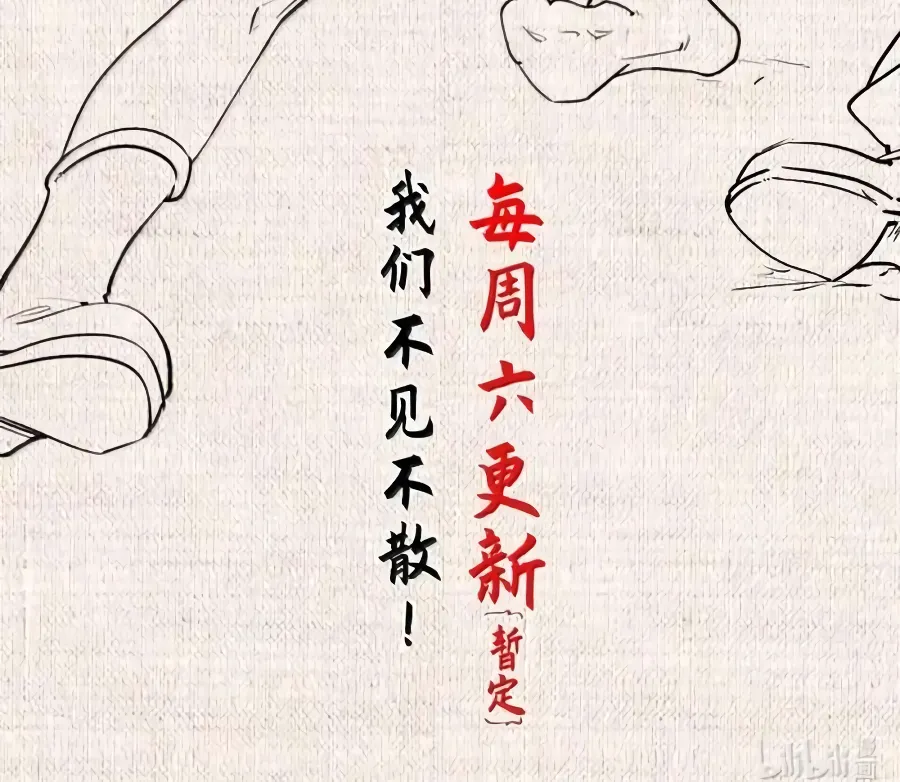 每周六更新(暂定)
我们不见不散!
bilibili漫画